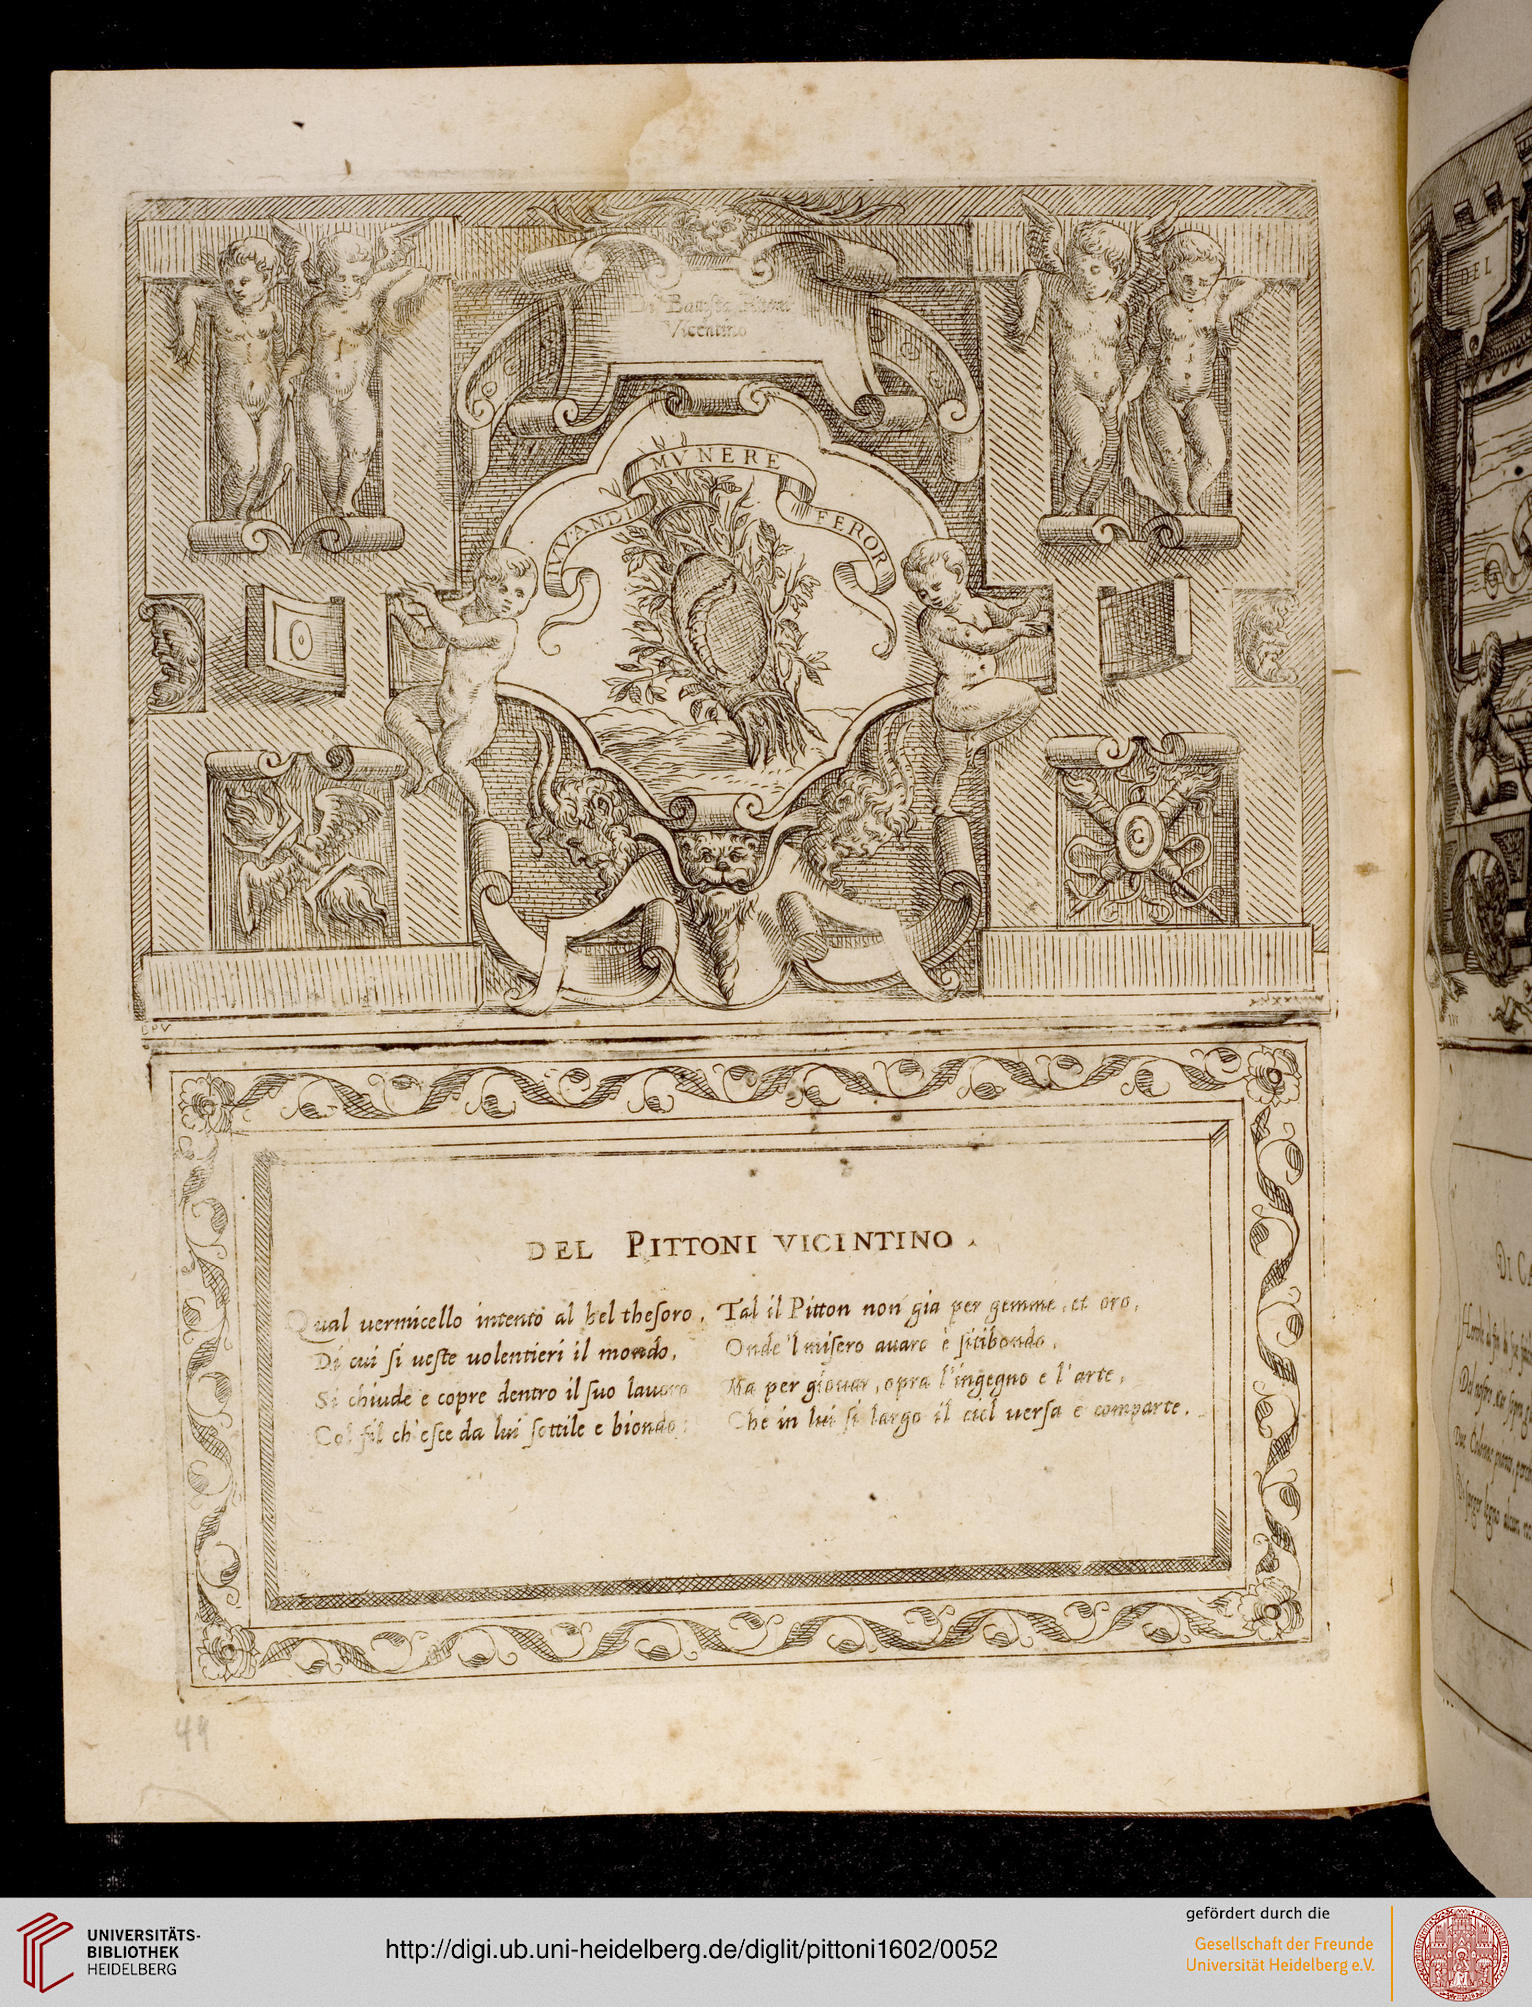 Di Battista Pittoni
Vicentino
IVVANDI MVNERE FEROR
G
BPV
DEL PITTONI VICINTINO.
Qual uermicello intento al bel theſoro,
Di cui ſi ueſte uolentieri il mondo,
Si chiude e copre dentro il ſuo lauoro
Col fil ch'eſce da lui ſottile e biondo;
Tal il Pitton non gia per gemme, et oro,
Onde 'l miſero auaro è ſitibondo,
Ma per giouar, opra l'ingegno e l'arte,
Che in lui ſi largo il ciel uerſa e comparte.
44
DEL
DI CA
UNIVERSITÄTS-
BIBLIOTHEK
HEIDELBERG
http://digi.ub.uni-heidelberg.de/diglit/pittoni1602/0052
gefördert durch die
Gesellschaft der Freunde
Universität Heidelberg e.V.